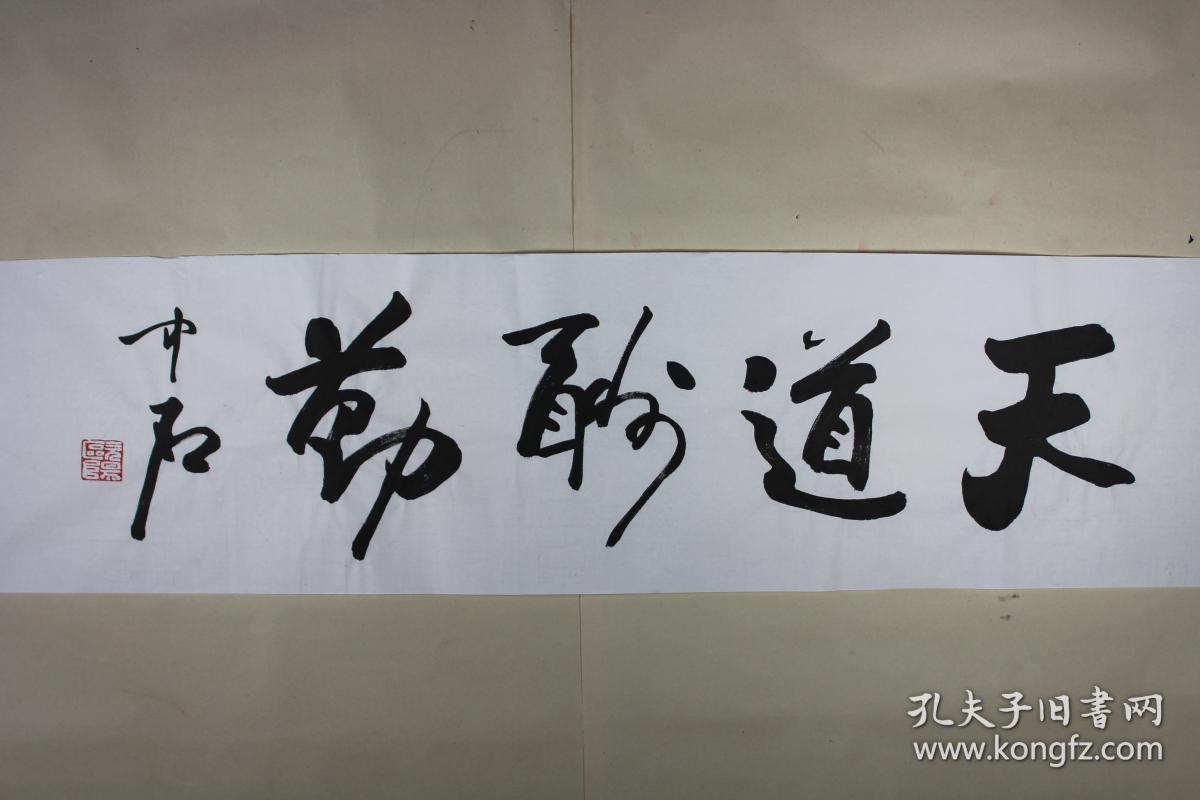 天道酬勤
中石
孔夫子旧書网
www.kongfz.com